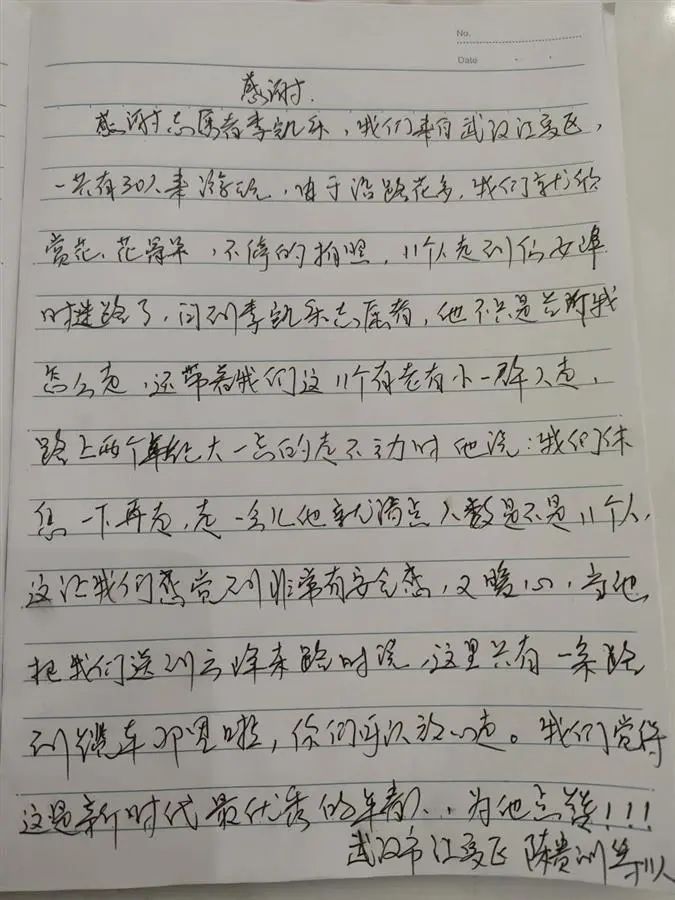 No.
Date
感谢
感谢志愿者李凯乐，我们来自武汉江夏区，
一共有30人来游玩，由于沿路花多，我们就
赏花、花，不停的拍照，11个人走到仙女
时迷路了，问到李凯乐志愿者，他不只是告诉我
怎么走，还带着我们这11个有老有小一群人走，
路上两个年纪大一点的走不动时他说：我们休
息一下再走，走一会儿他就清点人数是不是11个人，
这让我们感觉到非常有安全感，又暖心，当他
把我们送到云峰来路时说，这里只有一条路
到缆车那里啦，你们可以放心走。我们觉得
这是新时代最优秀的年青人，为他点赞!!!
武汉市江夏区 陈贵 等11人